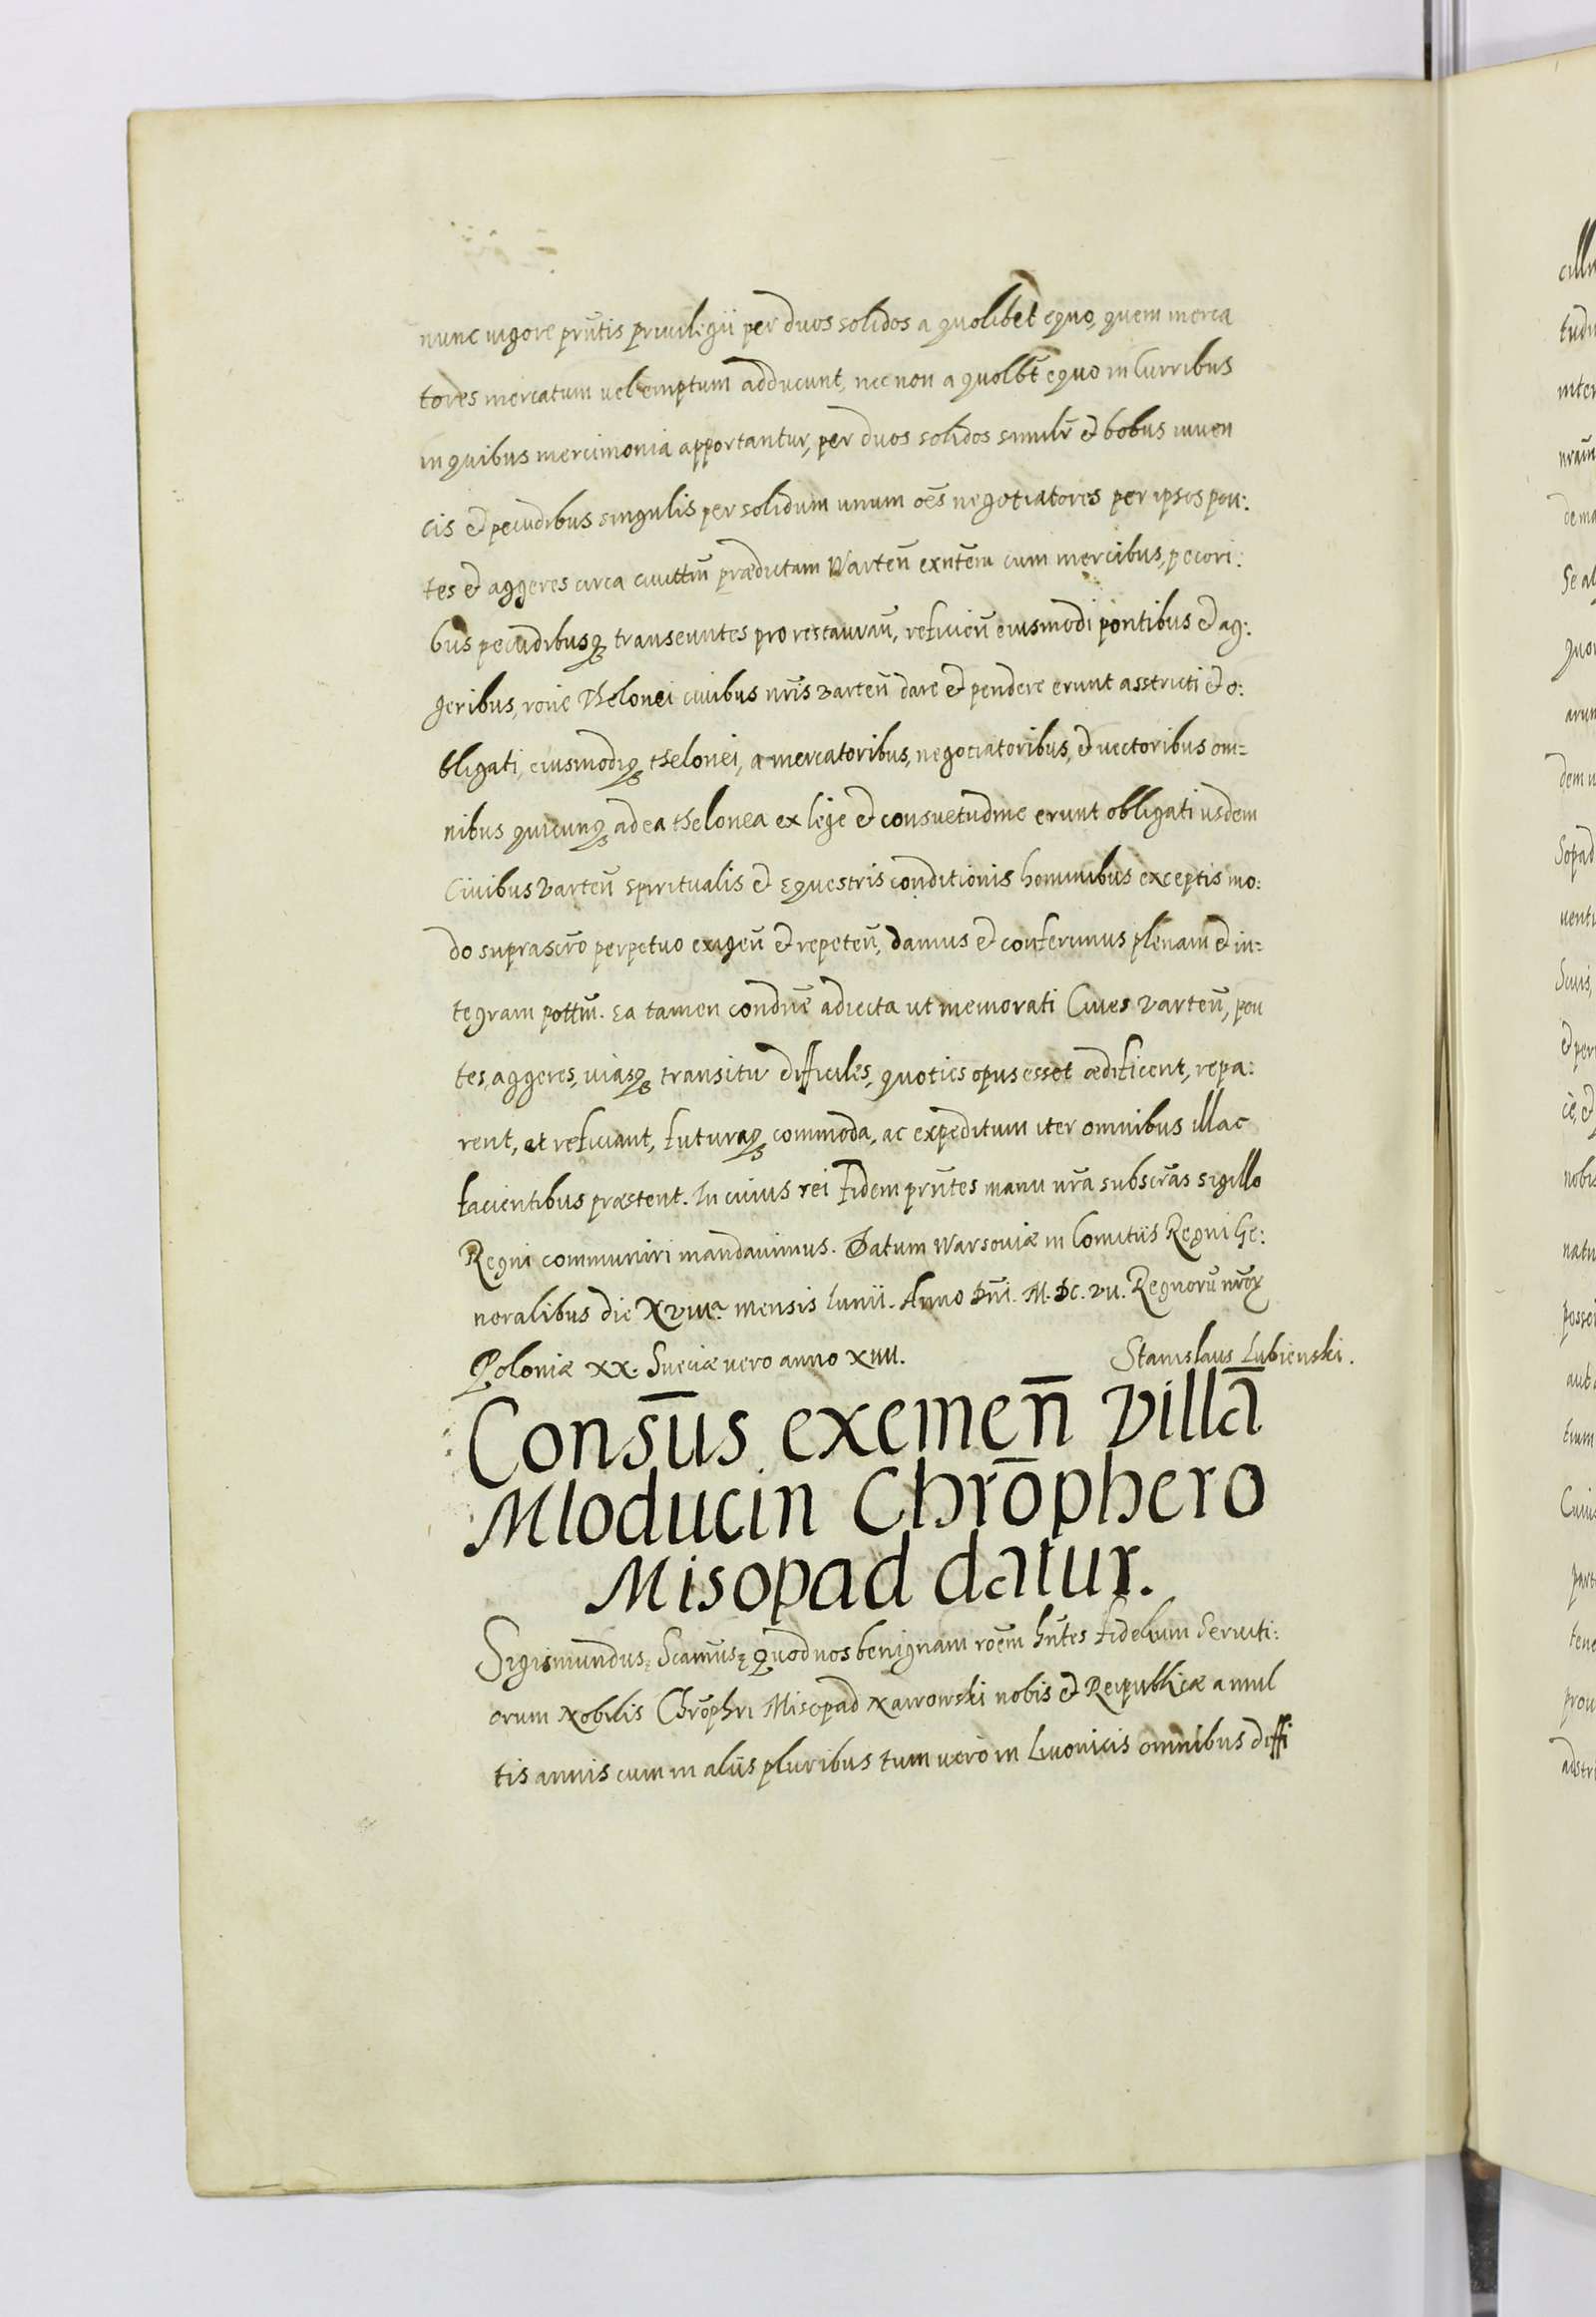 nunc vigore pñtis privilegii per duos solidos a quolibet equo, quem merca
tores mercatum vel emptum adducunt, nec non a quolbt̃ equo in Curribus
in quibus mercimonia apportantur, per duos solidos similr̃ et bobus iuven
cis et pecudibus singulis per solidum unum oẽs negotiatores per ipsos pon:
tes et aggeres circa civittm̃ prædictam Warteñ exñtem cum mercibus, pecori:
bus pecudibusq; transeuntes pro restaurañ, reficieñ eiusmodi pontibus et ag:
geribus, rone Thelonei civibus nr̃is varteñ dare et pendere erunt asstricti et o:
bligati, eiusmodiq; thelonei, a mercatoribus, negociatoribus, et vectoribus om=
nibus quicunq; ad ea thelonea ex lege et consuetudine erunt obligati iisdem
Civibus varteñ spiritualis et equestris conditionis hominibus exceptis mo:
do suprascrõ perpetuo exigeñ et repeteñ, damus et conferimus plenam et in=
tegram pottm̃. Ea tamen condne adiecta ut memorati Cives varteñ, pon
tes, aggeres, viasq; transitu difficiles, quoties opus esset ædificent, repa:
rent, et reficiant, futuraq; commoda, ac expeditum iter omnibus illac
facientibus præstent. In cuius rei fidem pr̃ntes manu nr̃a subscr̃as sigillo
Regni communiri mandavimus. Datum Warsoviæ in Comitiis Regni Ge:
neralibus die XVIIIa. mensis Iunii. Anno Dñi. M.DC.VII. Regnorũ nr̃or
Poloniæ XX. Sueciæ vero anno XIIII. Stanislaus Lubienski.
Consũs eximeñ villã
Mloducin Chrõphero
Misopad datur.
Sigismundus; Scamũs; Quod nos benignam roẽm hñtes fidelium Serviti:
orum Nobilis Chrõphri Misopad Nawrowski nobis et Reipublicæ a mul
tis annis cum in aliis pluribus tum vero in Livonicis omnibus diffi